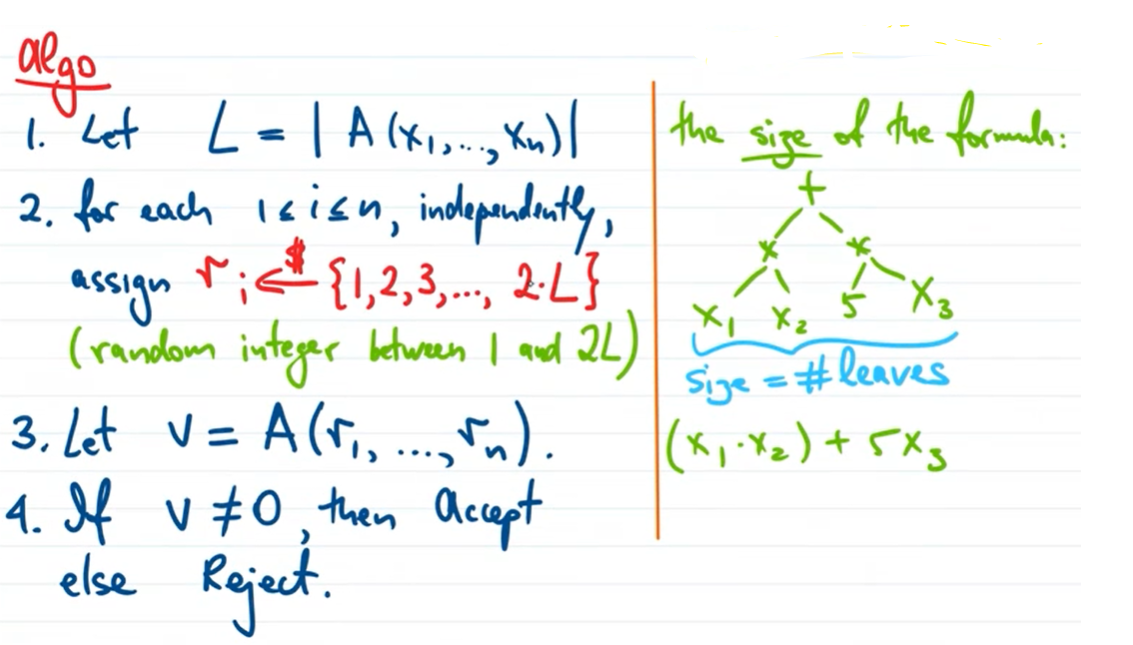 algo
1. Let L = | A (x₁, ..., xₙ) |
2. for each 1 ≤ i ≤ n, independently,
assign rᵢ ←$ {1, 2, 3, ..., 2·L}
(random integer between 1 and 2L)
3. Let v = A (r₁, ..., rₙ).
4. If v ≠ 0, then Accept
else Reject.
the size of the formula:
+
× ×
x₁ x₂ 5 x₃
size = # leaves
(x₁ · x₂) + 5x₃